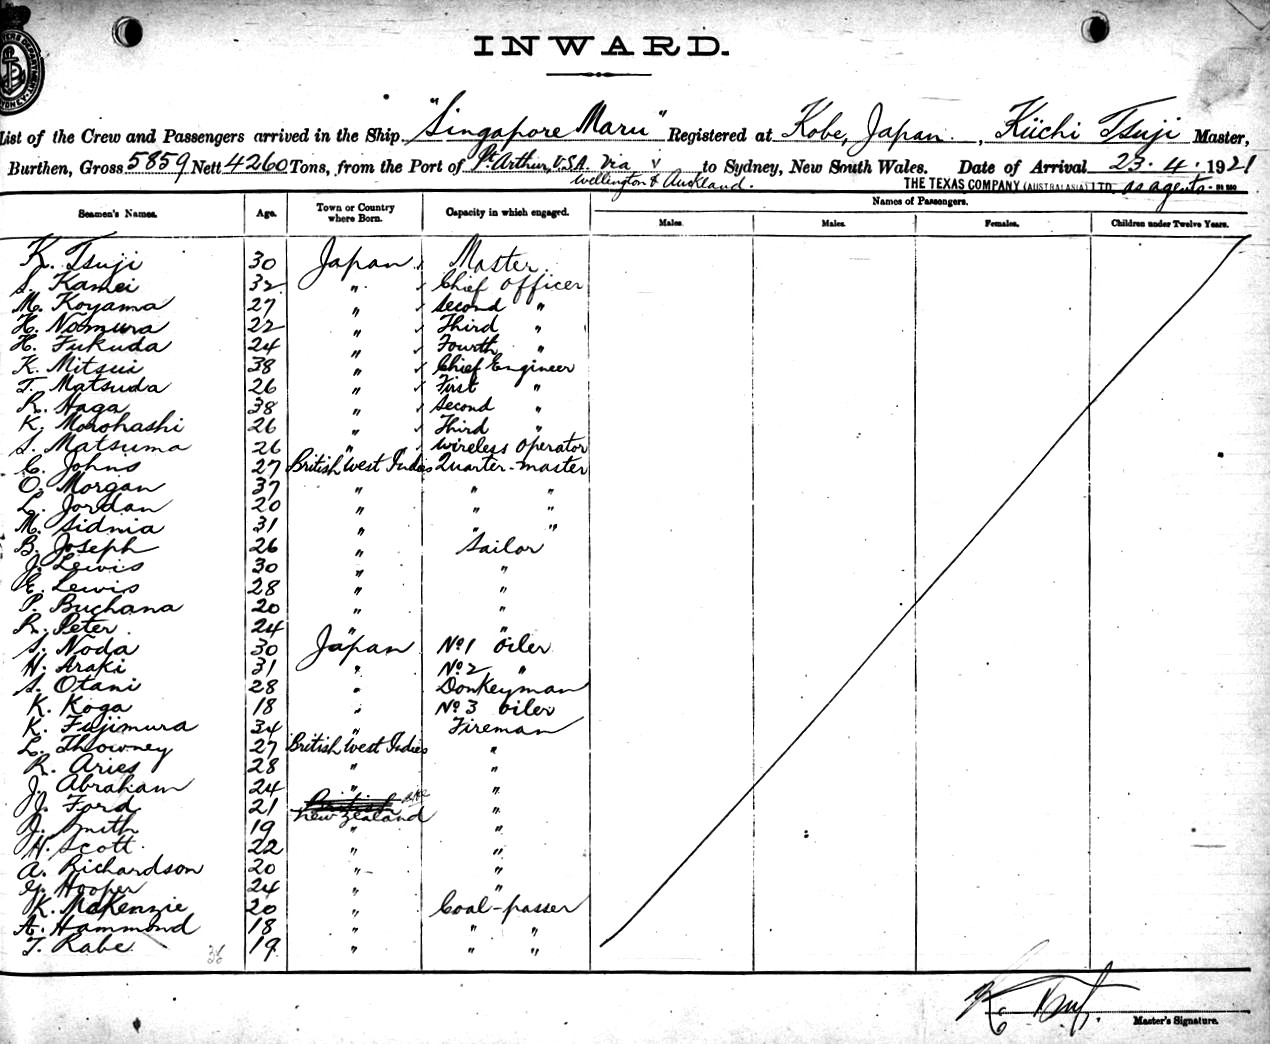 INWARD.
List of the Crew and Passengers arrived in the Ship "Singapore Maru" Registered at Kobe, Japan, Kiichi Tsuji Master,
Burthen, Gross 5859 Nett 4260 Tons, from the Port of Pt Arthur, U.S.A. Via to Sydney, New South Wales. Date of Arrival 23.4.1921
Wellington & Auckland.
THE TEXAS COMPANY (AUSTRALASIA) LTD. as agents.
Seamen's Names. Age. Town or Country where Born. Capacity in which engaged. Names of Passengers.
Males. Males. Females. Children under Twelve Years.
K. Tsuji 30 Japan Master
S. Kamei 32 " Chief Officer
M. Koyama 27 " Second "
H. Nomura 22 " Third "
H. Fukuda 24 " Fourth "
K. Mitsui 38 " Chief Engineer
T. Matsuda 26 " First "
R. Haga 38 " Second "
K. Morohashi 26 " Third "
S. Matsuma 26 " Wireless Operator
C. Johns 27 British West Indies Quarter-master
O. Morgan 37 " " "
L. Jordan 20 " " "
M. Sidnia 31 " " "
B. Joseph 26 " Sailor
J. Lewis 30 " "
E. Lewis 28 " "
P. Buchana 20 " "
R. Peter 24 " "
S. Noda 30 Japan No 1 Oiler
H. Araki 31 " No 2 "
S. Otani 28 " Donkeyman
K. Koga 18 " No 3 Oiler
K. Fujimura 34 " Fireman
L. Thowney 27 British West Indies "
R. Aries 28 " "
J. Abraham 24 " "
J. Ford 21 British New Zealand "
J. Smith 19 " "
H. Scott 22 " "
A. Richardson 20 " "
G. Hooper 24 " "
K. McKenzie 20 " Coal-passer
A. Hammond 18 " " "
T. Rabe 19 " " "
K. Tsuji
Master's Signature.